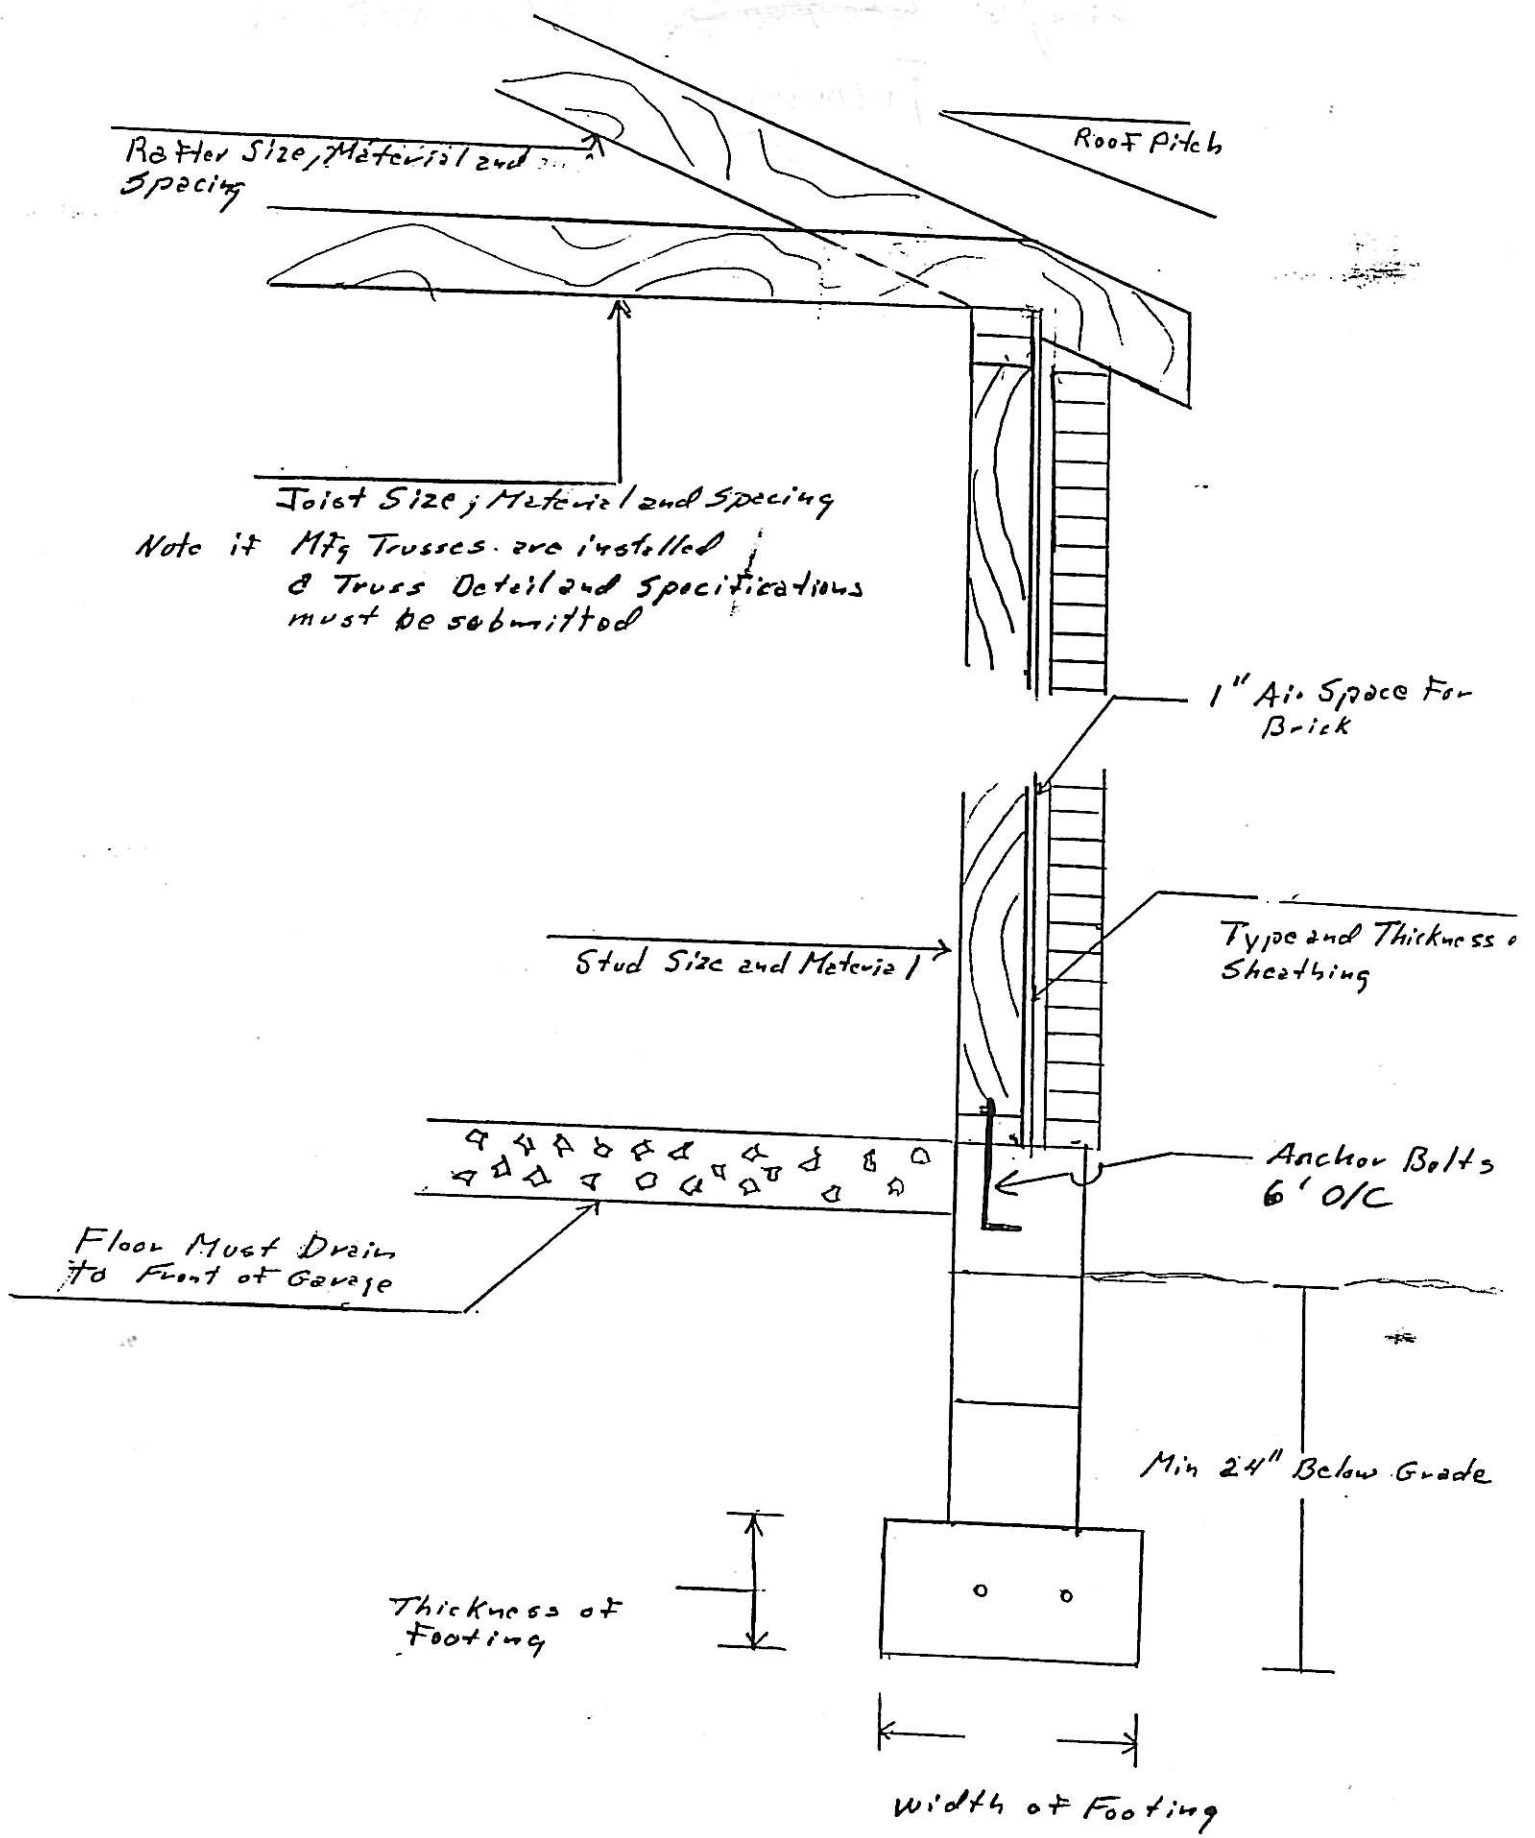 Roof Pitch
Rafter Size, Material and
Spacing
Joist Size, Material and Spacing
Note if Mfg Trusses are installed
a Truss Detail and Specifications
must be submitted
1" Air Space For
Brick
Type and Thickness
Sheathing
Stud Size and Material
Anchor Bolts
6' O/C
Floor Must Drain
to Front of Garage
Min 24" Below Grade
Thickness of
Footing
Width of Footing